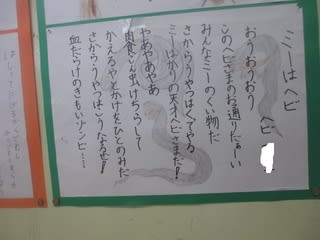 ミーはヘビ
ヘビ
おうおうおう
このヘビさまのお通りだぁーい
みんなミーのくい物だ
さからうやつはくってやる
ミーはかりの天才ヘビさまだ!
やあやあやあ
肉食こん虫けちらして
かえるやとかげをひとのみだ
さからうやつはこうなるぜ!
血だらけのきもいゾンビ…